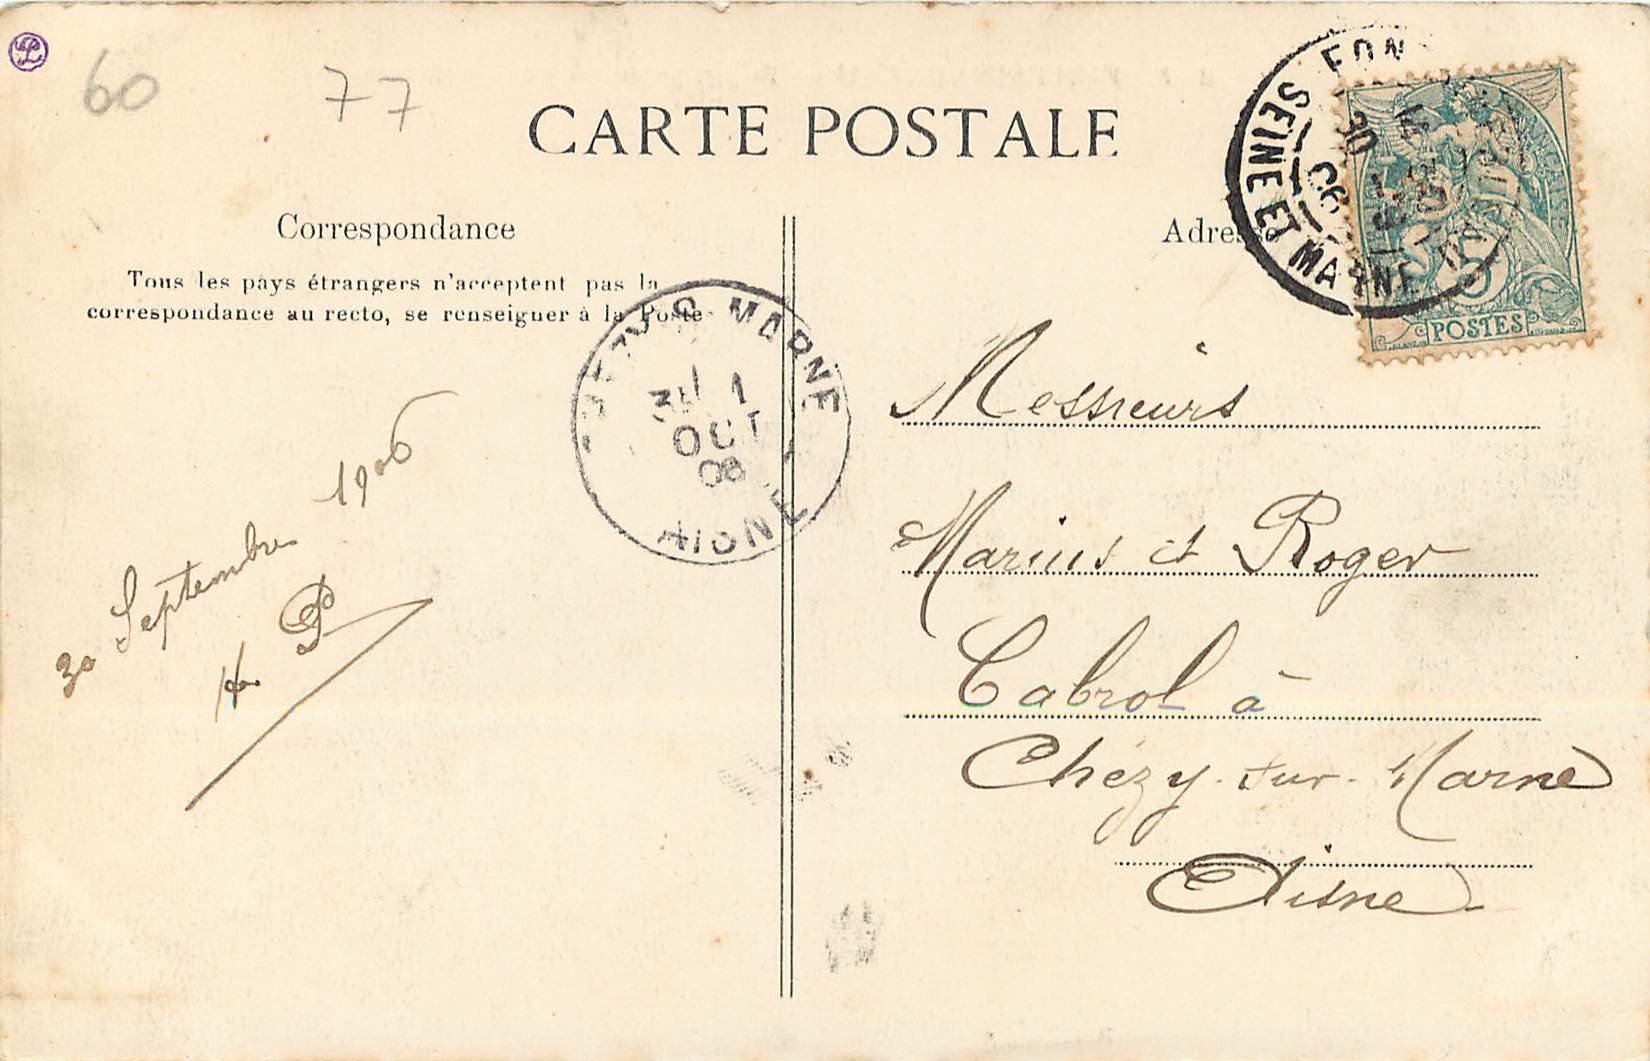 60
77
CARTE POSTALE
Correspondance
Tous les pays étrangers n'acceptent pas la
correspondance au recto, se renseigner à la Poste
30 Septembre 1906
Adresse
SEINE ET MARNE
POSTES
5
MARNE
1
OCT
AISNE
Messieurs
Marius et Roger
Cabrol à
Chézy-sur-Marne
Aisne